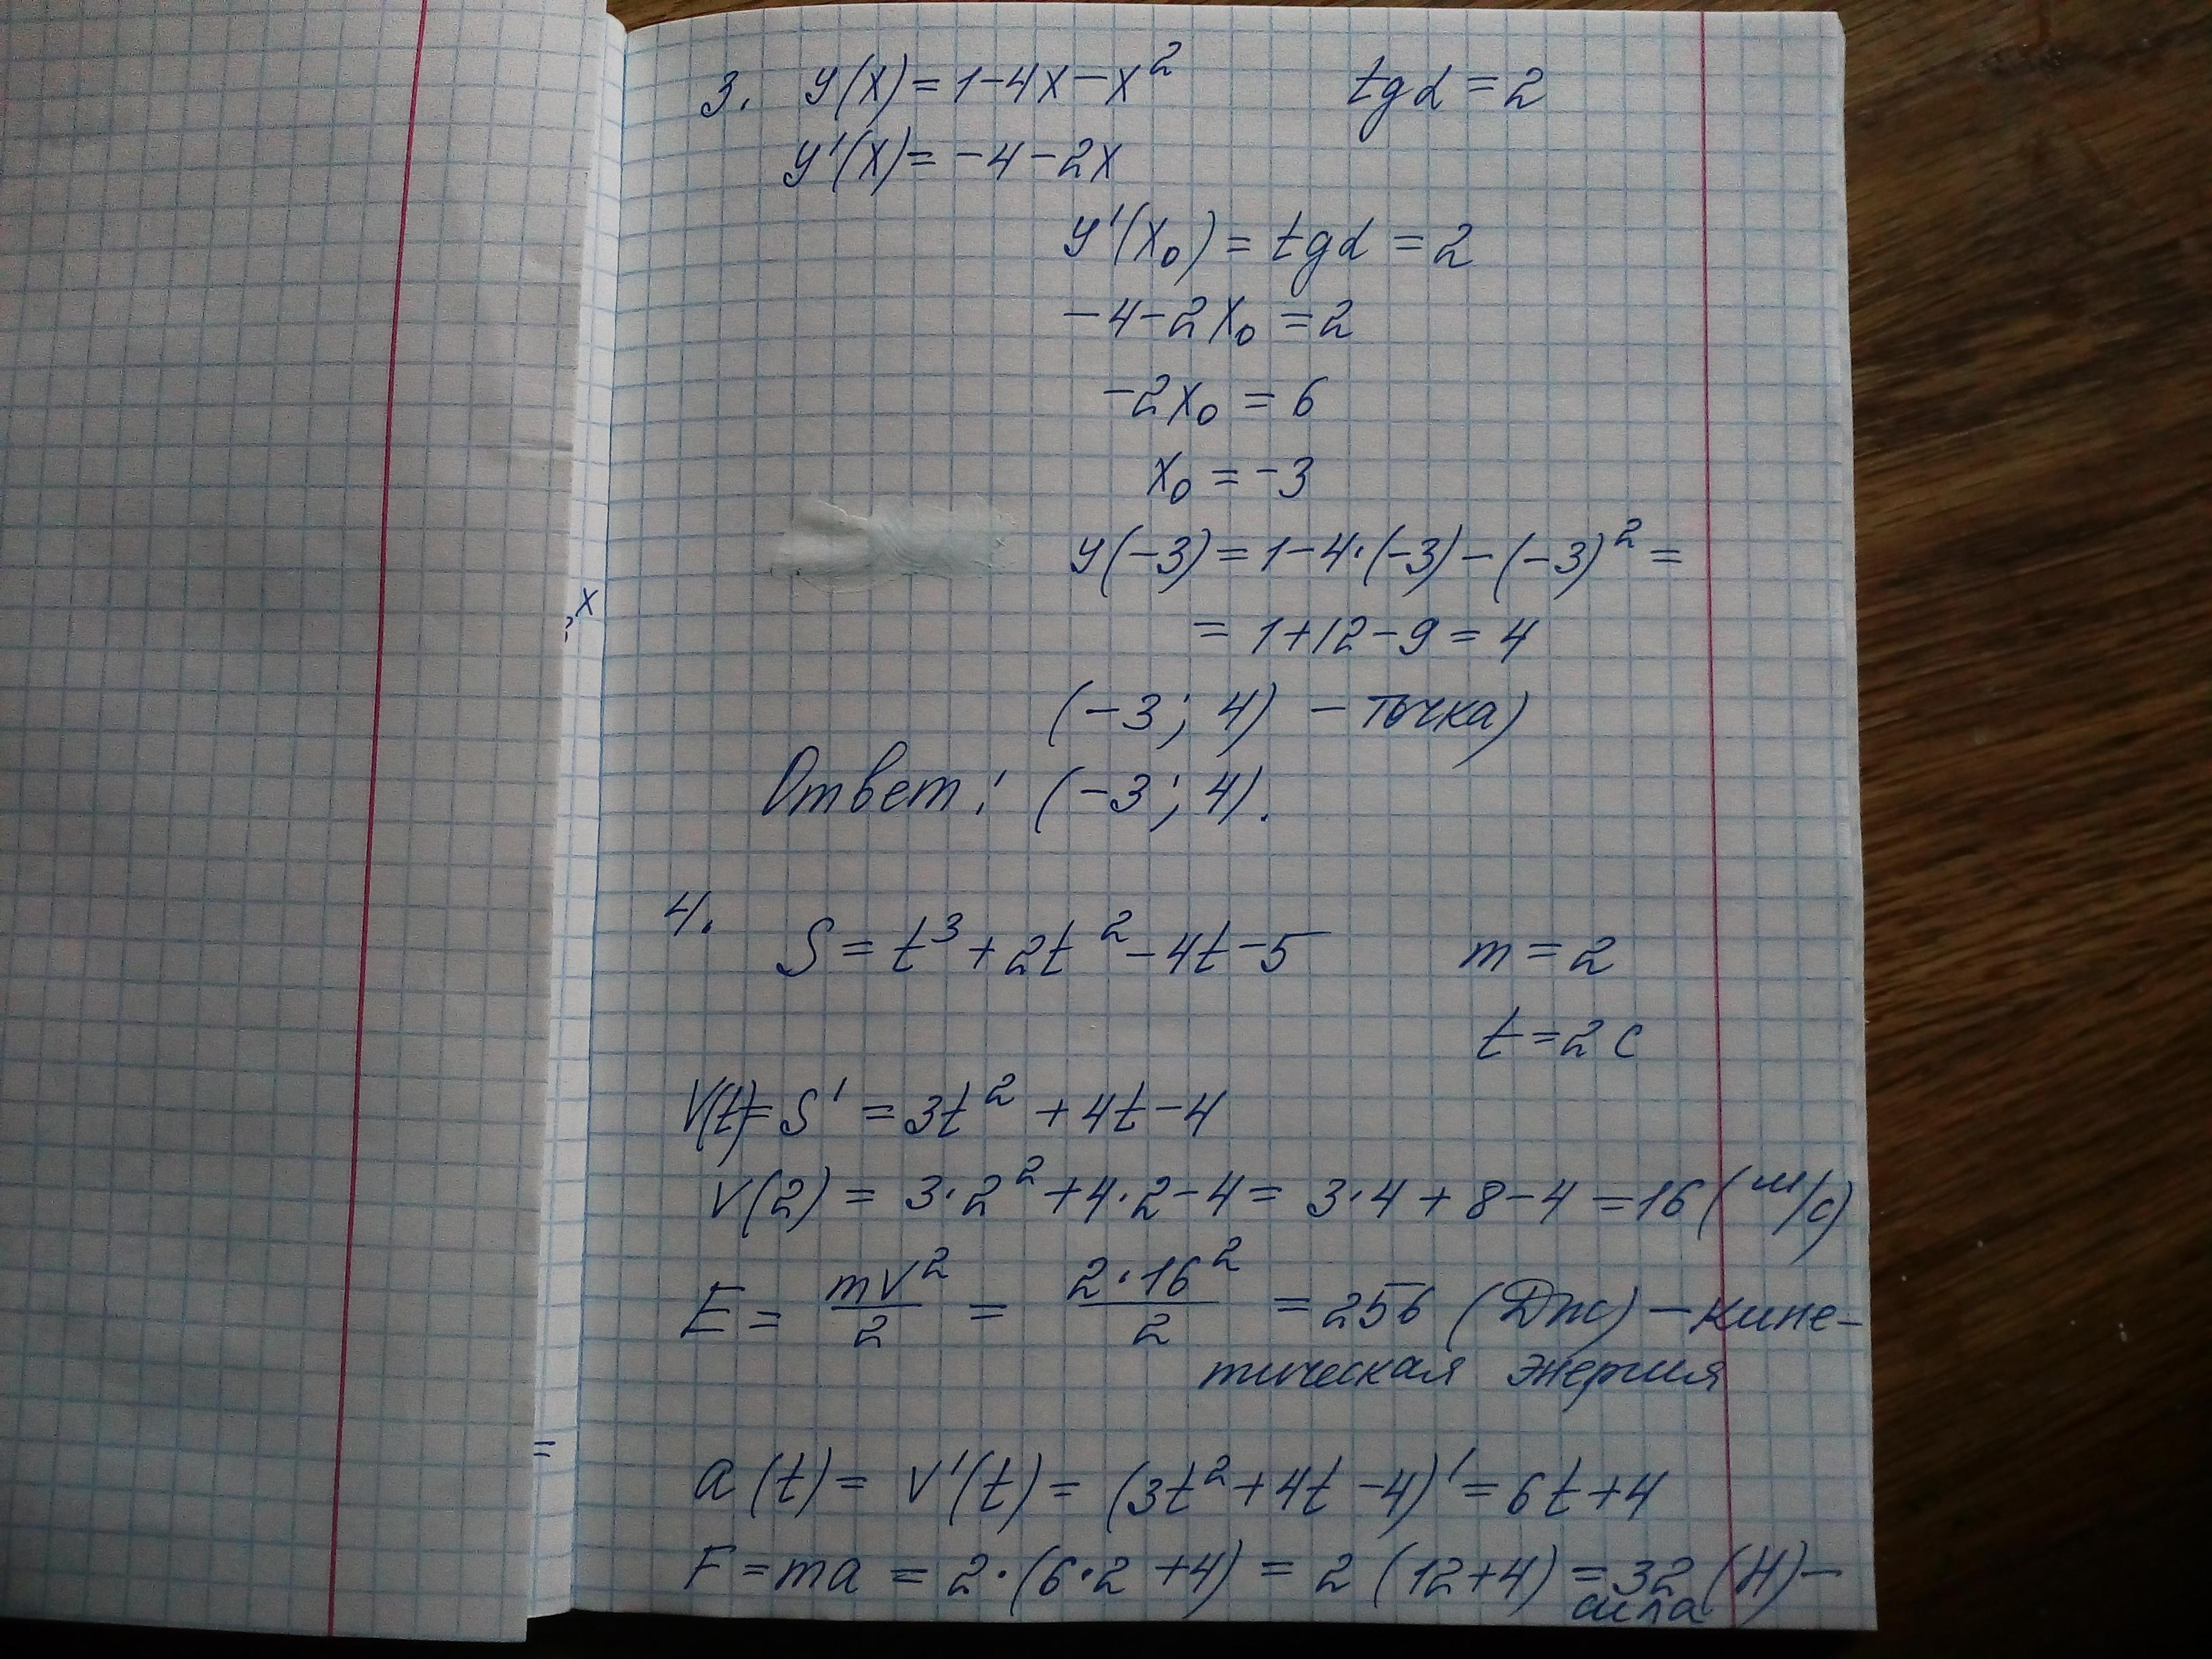 3. y(x)=1-4x-x² tgα=2
y'(x)=-4-2x
y'(x₀)=tgα=2
-4-2x₀=2
-2x₀=6
x₀=-3
y(-3)=1-4·(-3)-(-3)²=
x
=1+12-9=4
(-3; 4) - точка)
Ответ: (-3; 4).
4. S=t³+2t²-4t-5 m=2
t=2 с
V(t)=S'=3t²+4t-4
v(2)=3·2²+4·2-4=3·4+8-4=16 (м/с)
E=mv²/2=2·16²/2=256 (Дж) - кине-
тическая энергия
=
a(t)=v'(t)=(3t²+4t-4)'=6t+4
F=ma=2·(6·2+4)=2(12+4)=32 (Н)-
сила